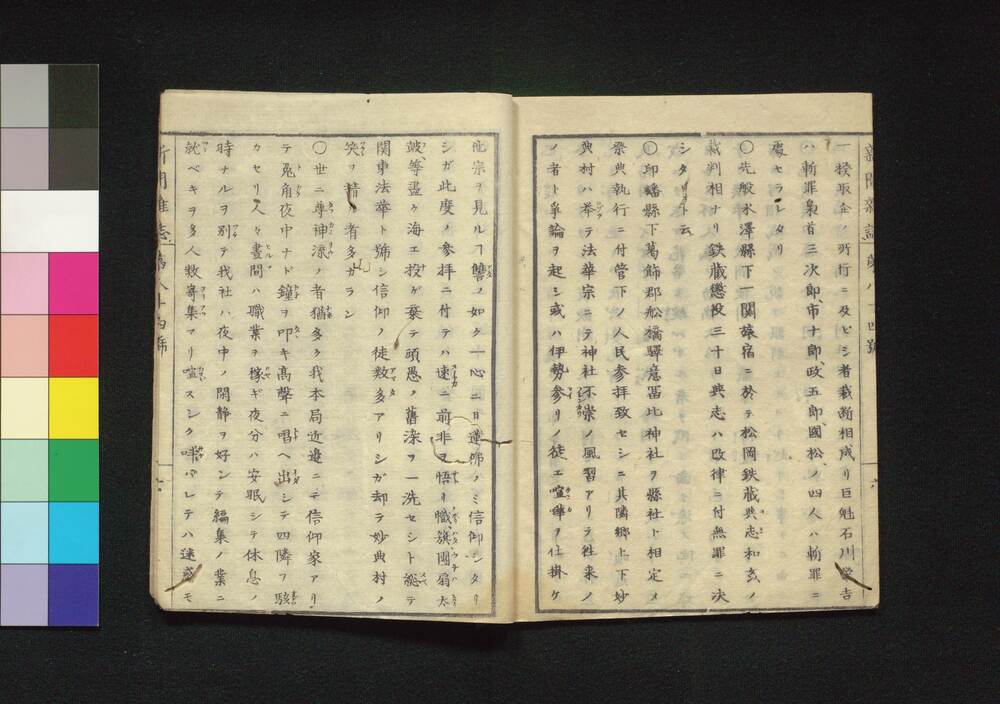 新聞雜誌 第八十四號 六
一揆取企ノ所行ニ及ビシ者裁斷相成リ巨魁石川榮吉
ハ斬罪梟首三次郎、市十郎、政五郎、國松ノ四人ハ斬罪ニ
處セラレタリ
〇先般水澤縣下一関旅宿ニ於テ松岡鉄藏與志和玄ノ
裁判相ナリ鉄藏懲役三十日與志ハ改律ニ付無罪ニ决
シタリト云
〇印幡縣下葛飾郡舩橋驛意冨比神社ヲ縣社ト相定メ
祭典執行ニ付管下ノ人民参拝致セシニ其隣郷上下妙
典村ハ挙テ法華宗ニテ神社不崇ノ風習アリテ徃来ノ
ノ者ト爭論ヲ起シ或ハ伊勢参リノ徒エ喧嘩ヲ仕掛ケ
他宗ヲ見ルヿ讐ノ如ク一心ニ日蓮佛ノミ信仰シタリ
シガ此度ノ参拝ニ付テハ速ニ前非ヲ悟リ幟、旗、團扇、太
皷、等盡ク海エ投ゲ棄テ頭愚ノ舊染ヲ一洗セシト総テ
関東法華ト號シ信仰ノ徒数多アリシガ却テ妙典村ノ
笑ヲ惜ル者多カラン
〇世ニ尊神凉ノ者猶多ク我本局近邉ニモ信仰家アリ
テ兎角夜中ナド鐘ヲ叩キ高聲ニ唱ヘ出シテ四隣ヲ駭
カセリ人々晝間ハ職業ヲ稼ギ夜分ハ安眠シテ休息ノ
時ナルヲ別テ我社ハ夜中ノ閑静ヲ好ンテ編集ノ業ニ
就ベキヲ多人数寄集アリ喧スシク噪バレテハ迷惑モ
新聞雜誌 第八十四號 六